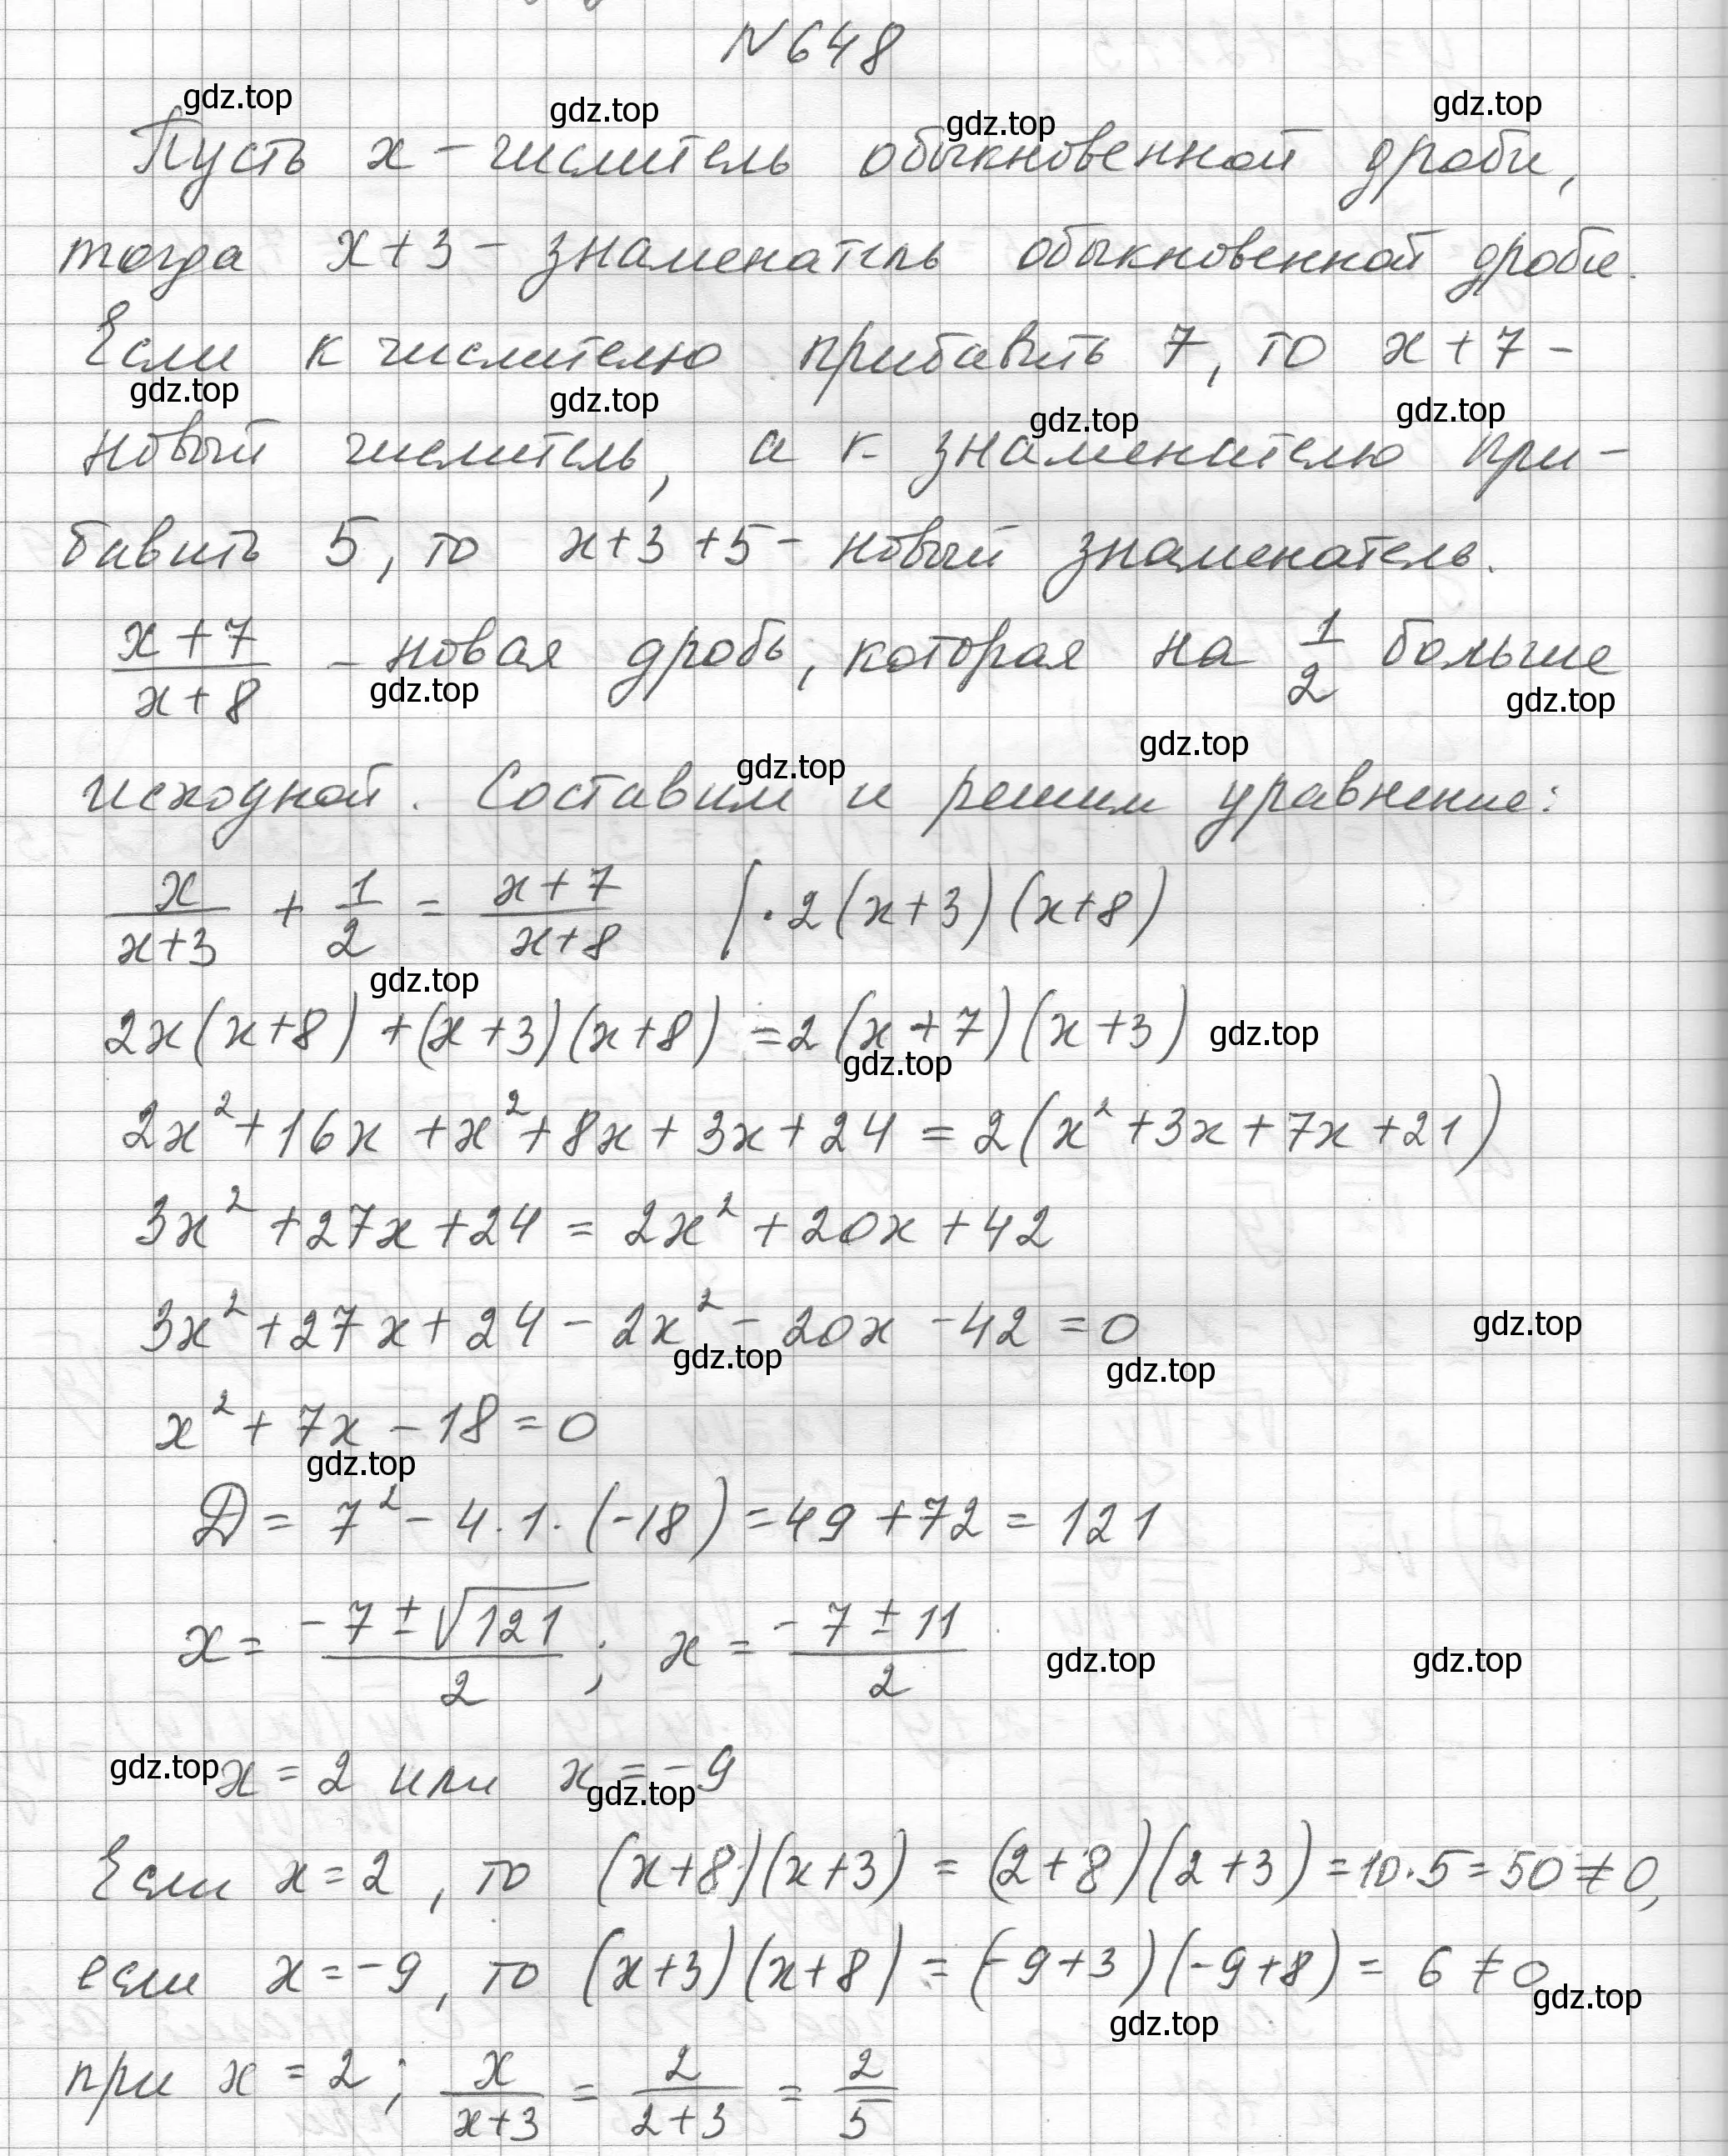 N 648
gdz.top gdz.top gdz.top gdz.top
Пусть x - числитель обыкновенной дроби,
тогда x+3 - знаменатель обыкновенной дроби.
Если к числителю прибавить 7, то x+7 -
gdz.top gdz.top gdz.top gdz.top
новый числитель, а к знаменателю при-
бавить 5, то x+3+5 - новый знаменатель.
(x+7)/(x+8) - новая дробь, которая на 1/2 больше
gdz.top gdz.top
gdz.top gdz.top
исходной. Составим и решим уравнение:
x/(x+3) + 1/2 = (x+7)/(x+8) | · 2(x+3)(x+8)
gdz.top
2x(x+8)+(x+3)(x+8)=2(x+7)(x+3) gdz.top
gdz.top
2x²+16x+x²+8x+3x+24=2(x²+3x+7x+21)
3x²+27x+24=2x²+20x+42
3x²+27x+24-2x²-20x-42=0 gdz.top
gdz.top gdz.top
x²+7x-18=0
gdz.top
D=7²-4·1·(-18)=49+72=121
x=(-7±√121)/2; x=(-7±11)/2 gdz.top gdz.top
gdz.top x=2 или x=-9
gdz.top
Если x=2, то (x+8)(x+3)=(2+8)(2+3)=10·5=50≠0,
если x=-9, то (x+3)(x+8)=(-9+3)(-9+8)=6≠0
gdz.top gdz.top
при x=2; x/(x+3)=2/(2+3)=2/5